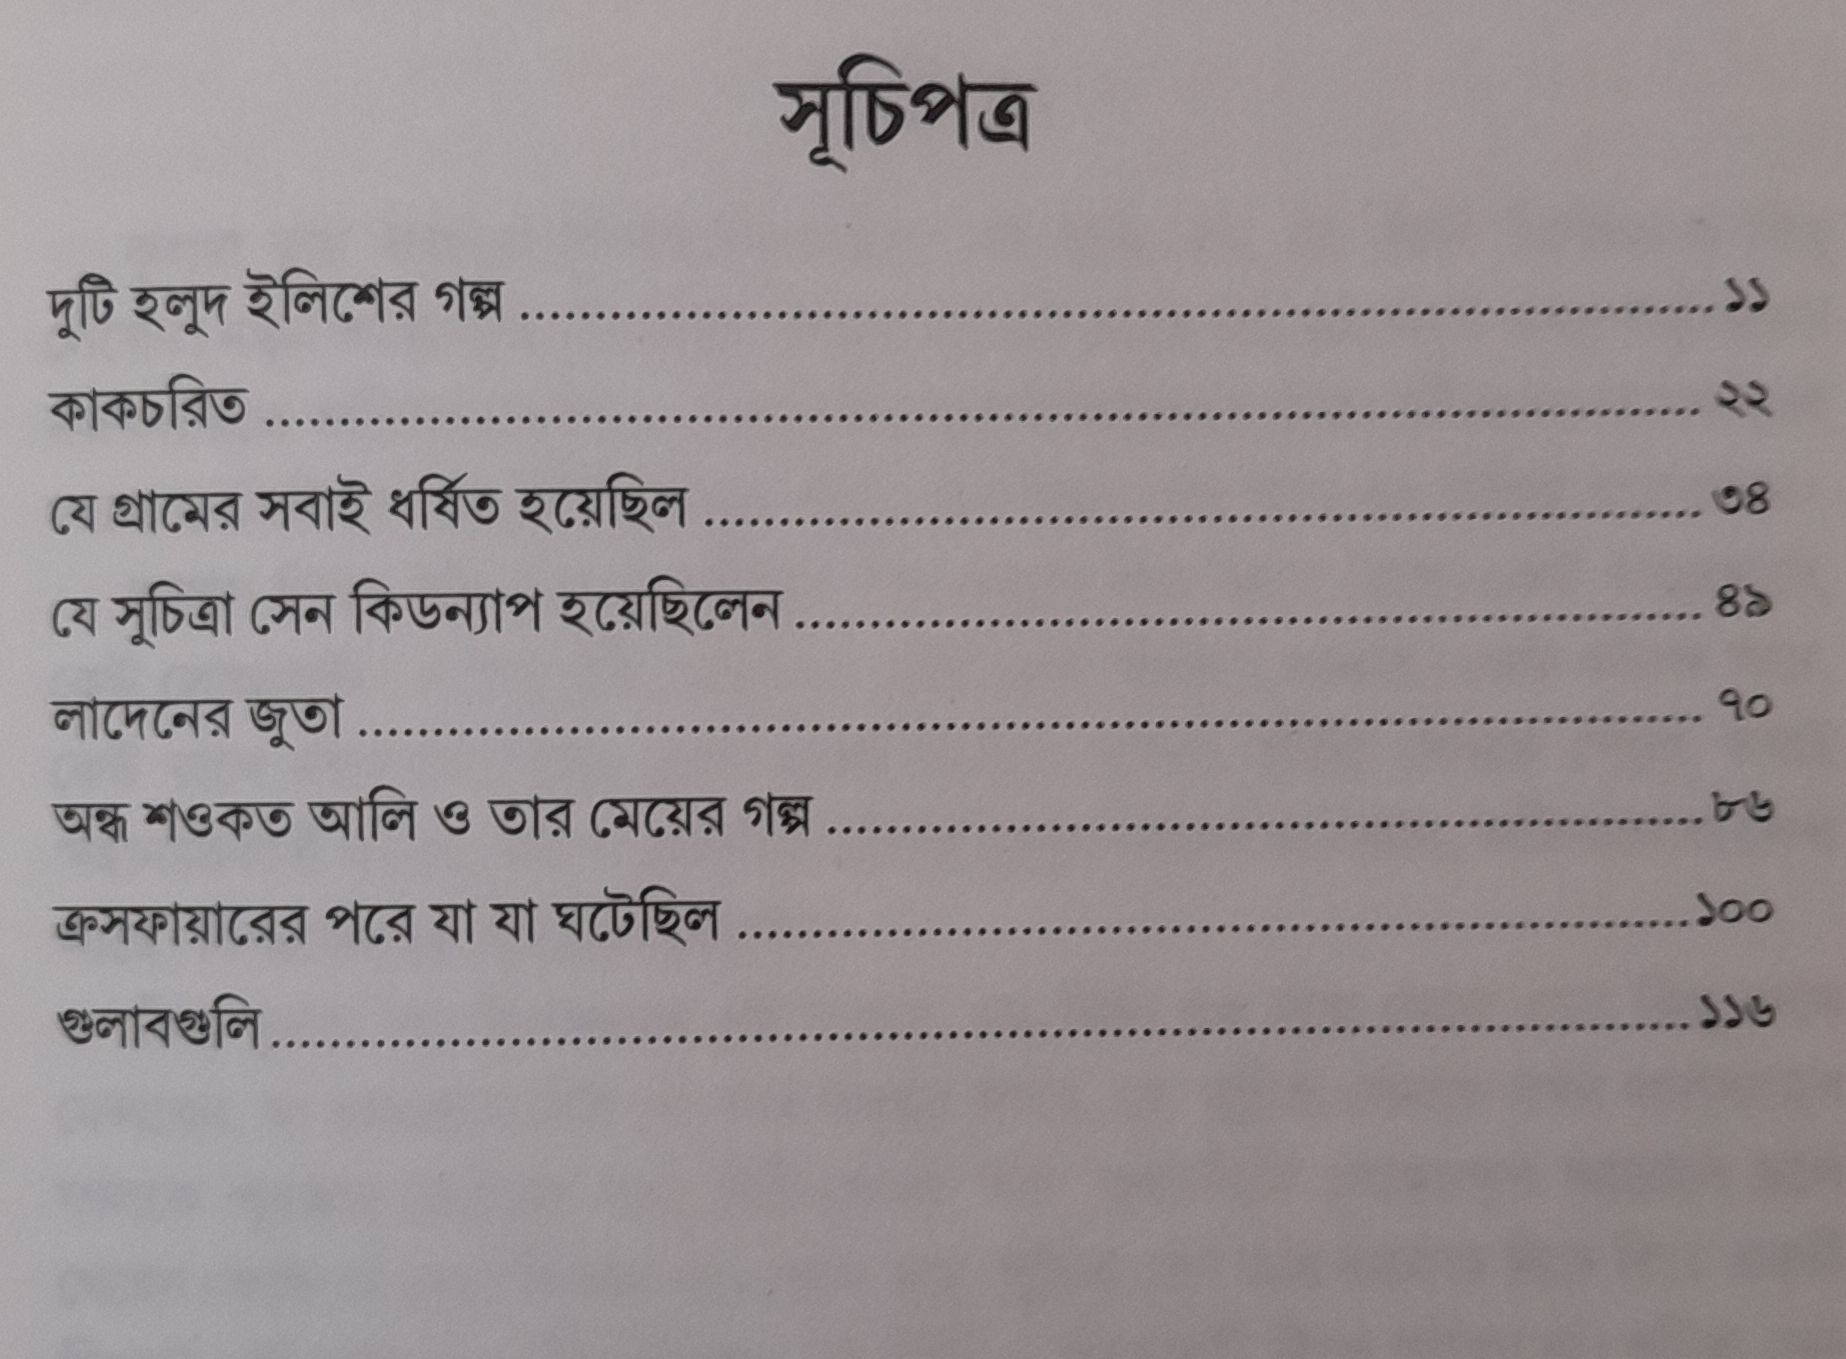 সূচিপত্র
দুটি হলুদ ইলিশের গল্প ........................................ ১১
কাকচরিত ........................................ ২২
যে গ্রামের সবাই ধর্ষিত হয়েছিল ........................................ ৩৪
যে সুচিত্রা সেন কিডন্যাপ হয়েছিলেন ........................................ ৪৯
লাদেনের জুতা ........................................ ৭০
অন্ধ শওকত আলি ও তার মেয়ের গল্প ........................................ ৮৬
ক্রসফায়ারের পরে যা যা ঘটেছিল ........................................ ১০০
গুলাবগুলি ........................................ ১১৬